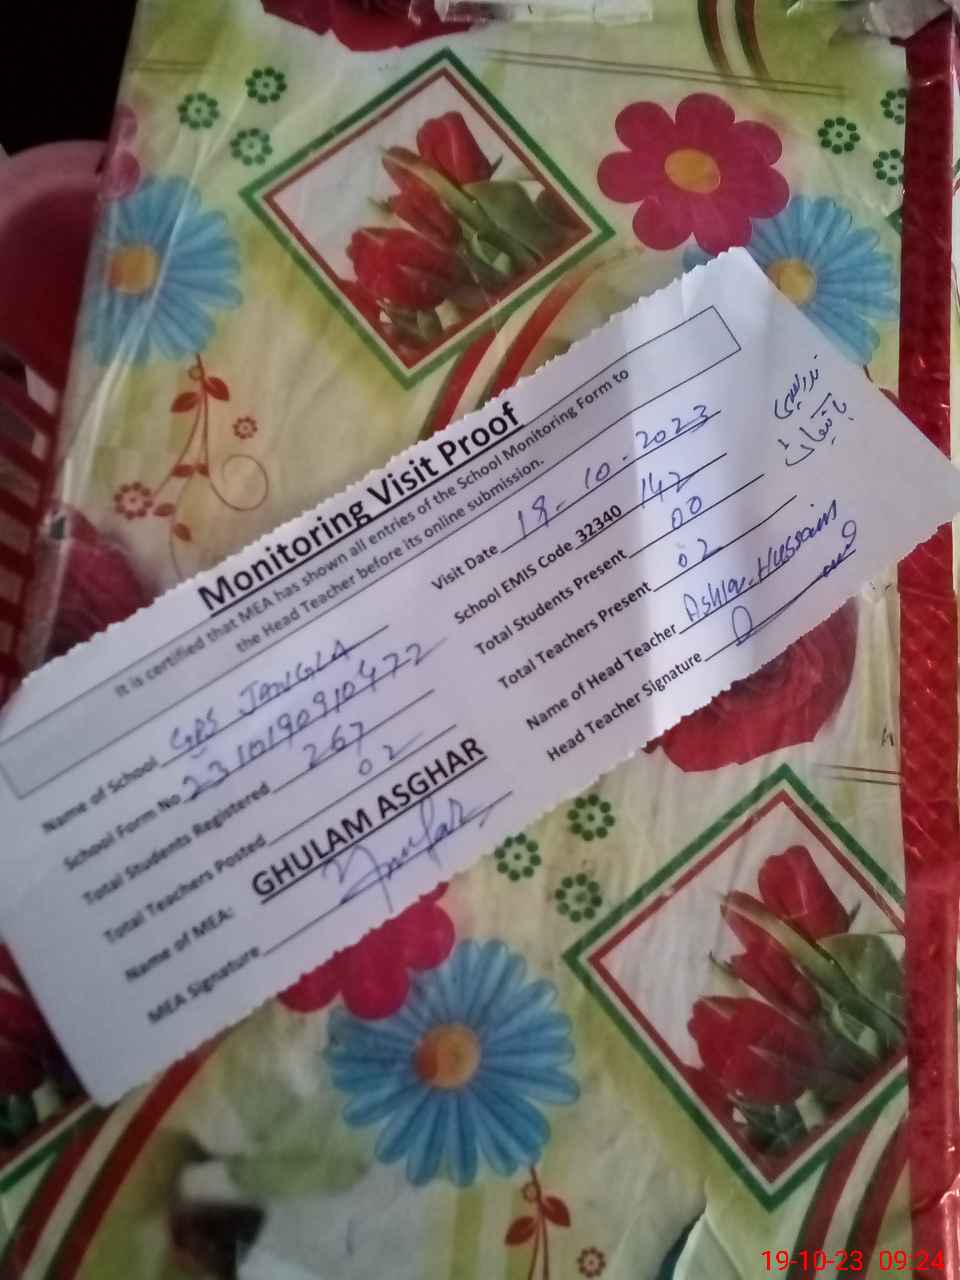 Monitoring Visit Proof
It is certified that MEA has shown all entries of the School Monitoring Form to
the Head Teacher before its online submission.
Name of School GPS JANGLA
Visit Date 18-10-2023
School Form No 2310190910472
School EMIS Code 32340 142
Total Students Registered 267
Total Students Present 00
Total Teachers Posted 02
Total Teachers Present 02
Name of MEA: GHULAM ASGHAR
Name of Head Teacher Hussain
MEA Signature
Head Teacher Signature
تدریسی
بائیکاٹ
19-10-23 09:24